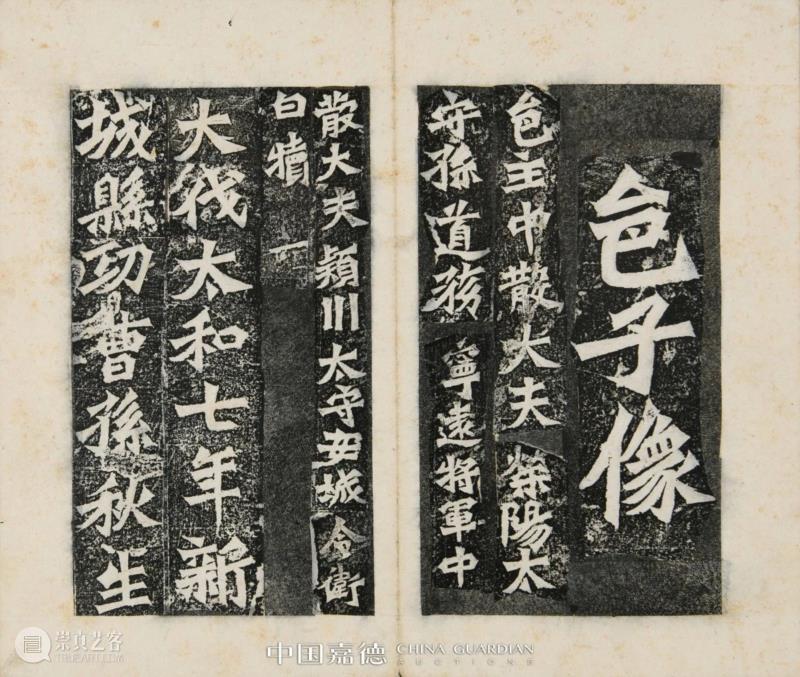 邑子像
邑主中散大夫荥陽太
守孫道務寧遠將軍中
散大夫潁川太守安城令衛
白犢
大伐太和七年新
城縣功曹孫秋生
崇真艺客
TRUEART.COM
中国嘉德
CHINA GUARDIAN
AUCTIONS